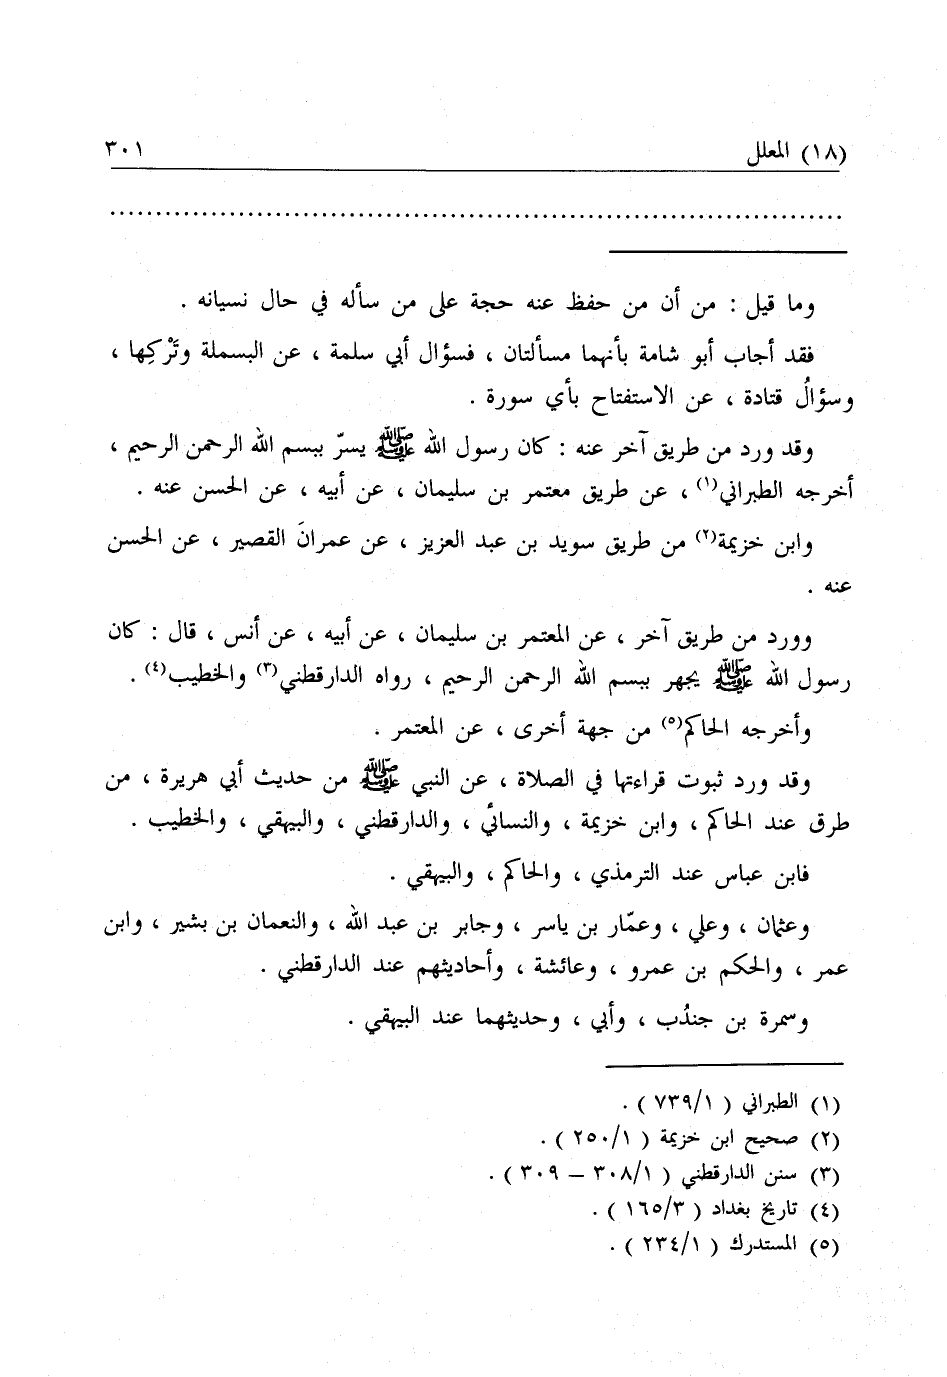 (١٨) المعلل ٣٠١
................................................................................
وما قيل : من أن من حفظ عنه حجة على من سأله في حال نسيانه .
فقد أجاب أبو شامة بأنهما مسألتان ، فسؤال أبي سلمة ، عن البسملة وتَرْكِها ،
وسؤالُ قتادة ، عن الاستفتاح بأي سورة .
وقد ورد من طريق آخر عنه : كان رسول الله ﷺ يسرّ ببسم الله الرحمن الرحيم ،
أخرجه الطبراني(١) ، عن طريق معتمر بن سليمان ، عن أبيه ، عن الحسن عنه .
وابن خزيمة(٢) من طريق سويد بن عبد العزيز ، عن عمرانَ القصير ، عن الحسن
عنه .
وورد من طريق آخر ، عن المعتمر بن سليمان ، عن أبيه ، عن أنس ، قال : كان
رسول الله ﷺ يجهر ببسم الله الرحمن الرحيم ، رواه الدارقطني(٣) والخطيب(٤) .
وأخرجه الحاكم(٥) من جهة أخرى ، عن المعتمر .
وقد ورد ثبوت قراءتها في الصلاة ، عن النبي ﷺ من حديث أبي هريرة ، من
طرق عند الحاكم ، وابن خزيمة ، والنسائي ، والدارقطني ، والبيهقي ، والخطيب .
فابن عباس عند الترمذي ، والحاكم ، والبيهقي .
وعثمان ، وعلي ، وعمّار بن ياسر ، وجابر بن عبد الله ، والنعمان بن بشير ، وابن
عمر ، والحكم بن عمرو ، وعائشة ، وأحاديثهم عند الدارقطني .
وسمرة بن جندُب ، وأبي ، وحديثهما عند البيهقي .
(١) الطبراني ( ٧٣٩/١ ) .
(٢) صحيح ابن خزيمة ( ٢٥٠/١ ) .
(٣) سنن الدارقطني ( ٣٠٨/١ – ٣٠٩ ) .
(٤) تاريخ بغداد ( ١٦٥/٣ ) .
(٥) المستدرك ( ٢٣٤/١ ) .